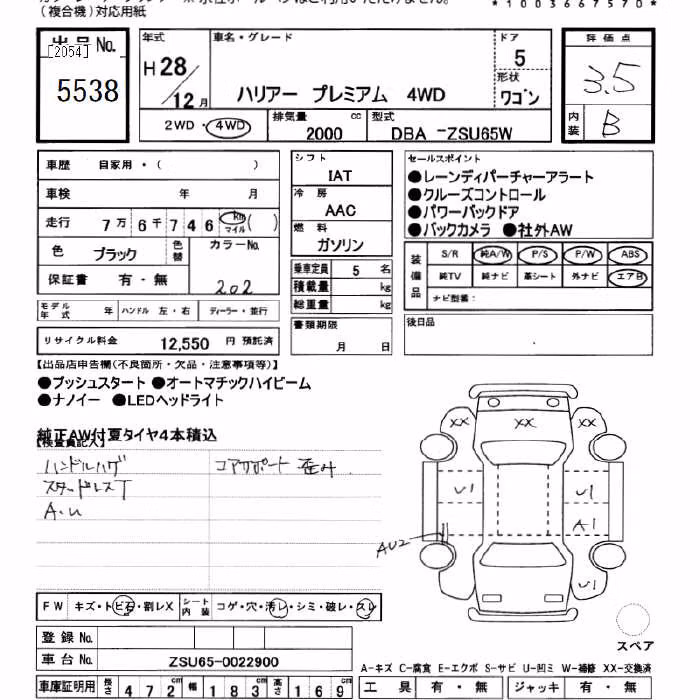 (複合機)対応用紙
*1003667570*
出品No.
[2054]
5538
年式
H28/12月
車名・グレード
ハリアー プレミアム 4WD
ドア
5
形状
ワゴン
2WD・4WD
排気量
2000 cc
型式
DBA -ZSU65W
評価点
3.5
内装
B
車歴 自家用・( )
車検 年 月
走行 7万6千746 km マイル ( )
色 ブラック 色替 カラーNo. 202
保証書 有・無
モデル年式 年 ハンドル 左・右 ディーラー・並行
リサイクル料金 12,550 円 預託済
シフト
IAT
冷房
AAC
燃料
ガソリン
乗車定員 5 名
積載量 kg
総重量 kg
書類期限
月 日
セールスポイント
●レーンディパーチャーアラート
●クルーズコントロール
●パワーバックドア
●バックカメラ ●社外AW
装備品
S/R 純A/W P/S P/W ABS
純TV 純ナビ 革シート 外ナビ エアB
ナビ型番:
後日品
【出品店申告欄(不良箇所・欠品・注意事項等)】
●プッシュスタート ●オートマチックハイビーム
●ナノイー ●LEDヘッドライト
純正AW付夏タイヤ4本積込
【検査員記入】
ハンドルハゲ
スタッドレスT
A.u
コアサポート 歪み
XX XX
U1 U1
A1
AU2
U1
FW キズ・トビ石・割レX シート内装 コゲ・穴・汚レ・シミ・破レ・スレ
登録No.
車台No. ZSU65-0022900
車庫証明用 長さ 472 cm 幅 183 cm 高さ 169 cm
スペア
A-キズ C-腐食 E-エクボ S-サビ U-凹ミ W-補修 XX-交換済
工具 有・無 ジャッキ 有・無